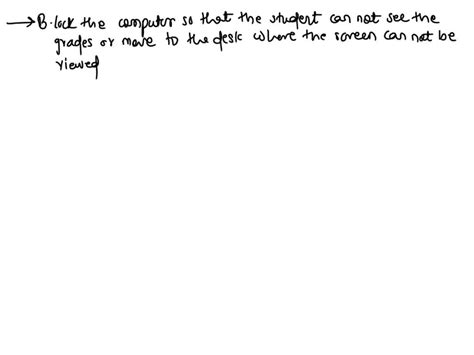 → B. lock the computer so that the student can not see the
grades or move to the desk where the screen can not be
viewed